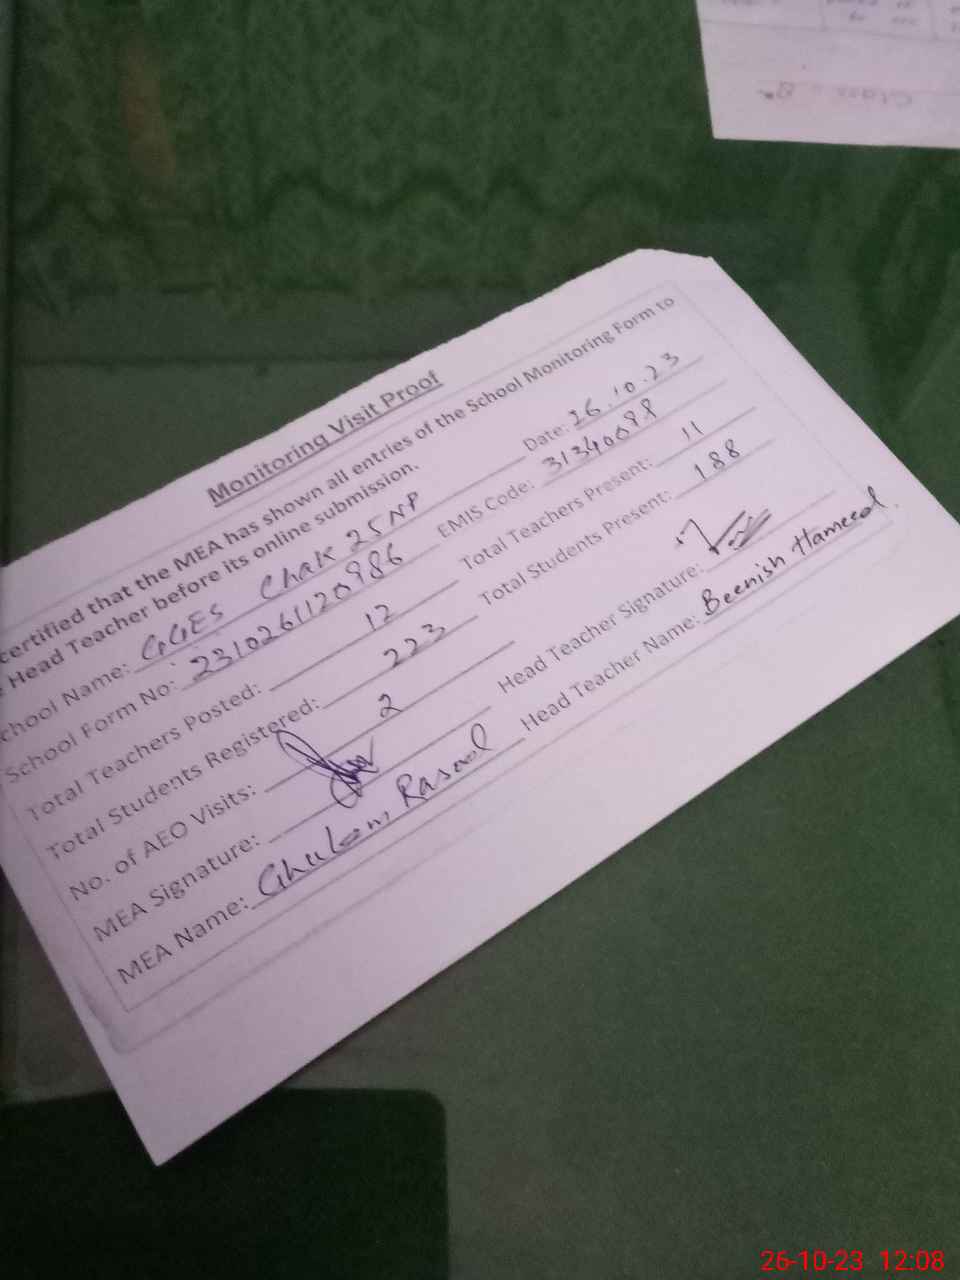 Monitoring Visit Proof
certified that the MEA has shown all entries of the School Monitoring Form to
Head Teacher before its online submission.
chool Name: GGES Chak 25 NP Date: 26.10.23
School Form No: 2310261120986 EMIS Code: 31340098
Total Teachers Posted: 12 Total Teachers Present: 11
Total Students Registered: 223 Total Students Present: 188
No. of AEO Visits: 2
MEA Signature: Head Teacher Signature:
MEA Name: Ghulam Rasool Head Teacher Name: Beenish Hameed.
26-10-23 12:08